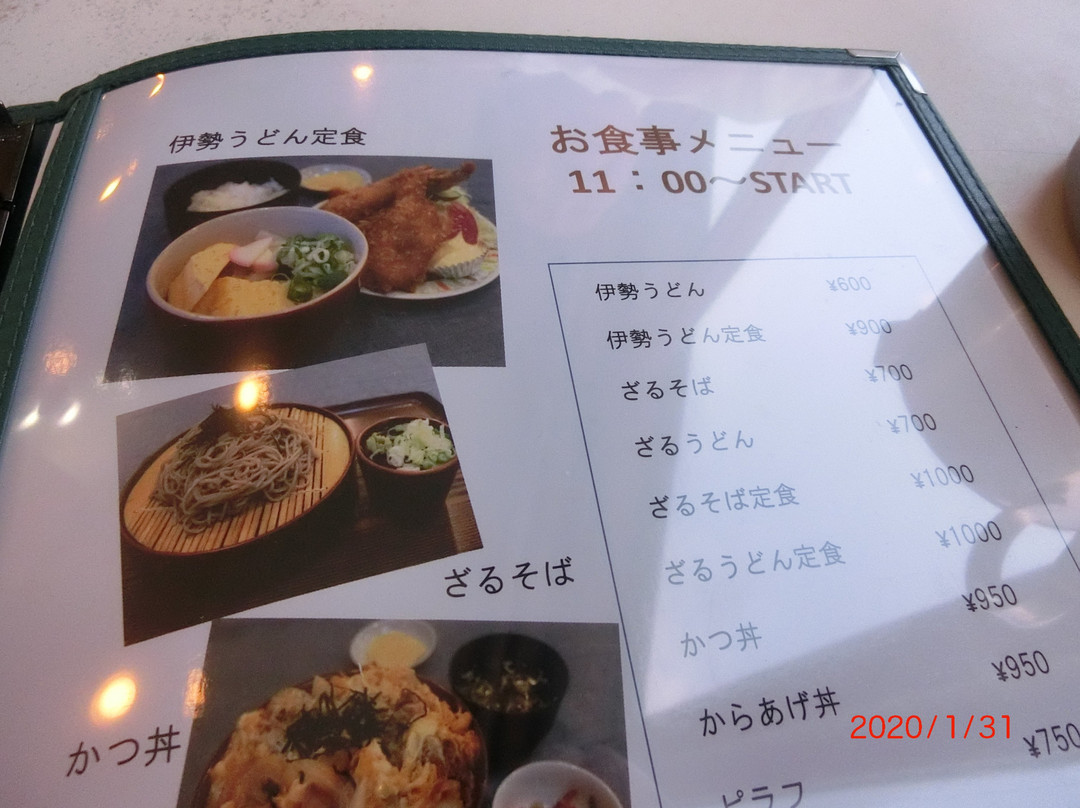 伊勢うどん定食
お食事メニュー
11：00～START
伊勢うどん ¥600
伊勢うどん定食 ¥900
ざるそば ¥700
ざるうどん ¥700
ざるそば定食 ¥1000
ざるうどん定食 ¥1000
かつ丼 ¥950
からあげ丼 ¥950
ピラフ ¥750
ざるそば
かつ丼
2020/1/31